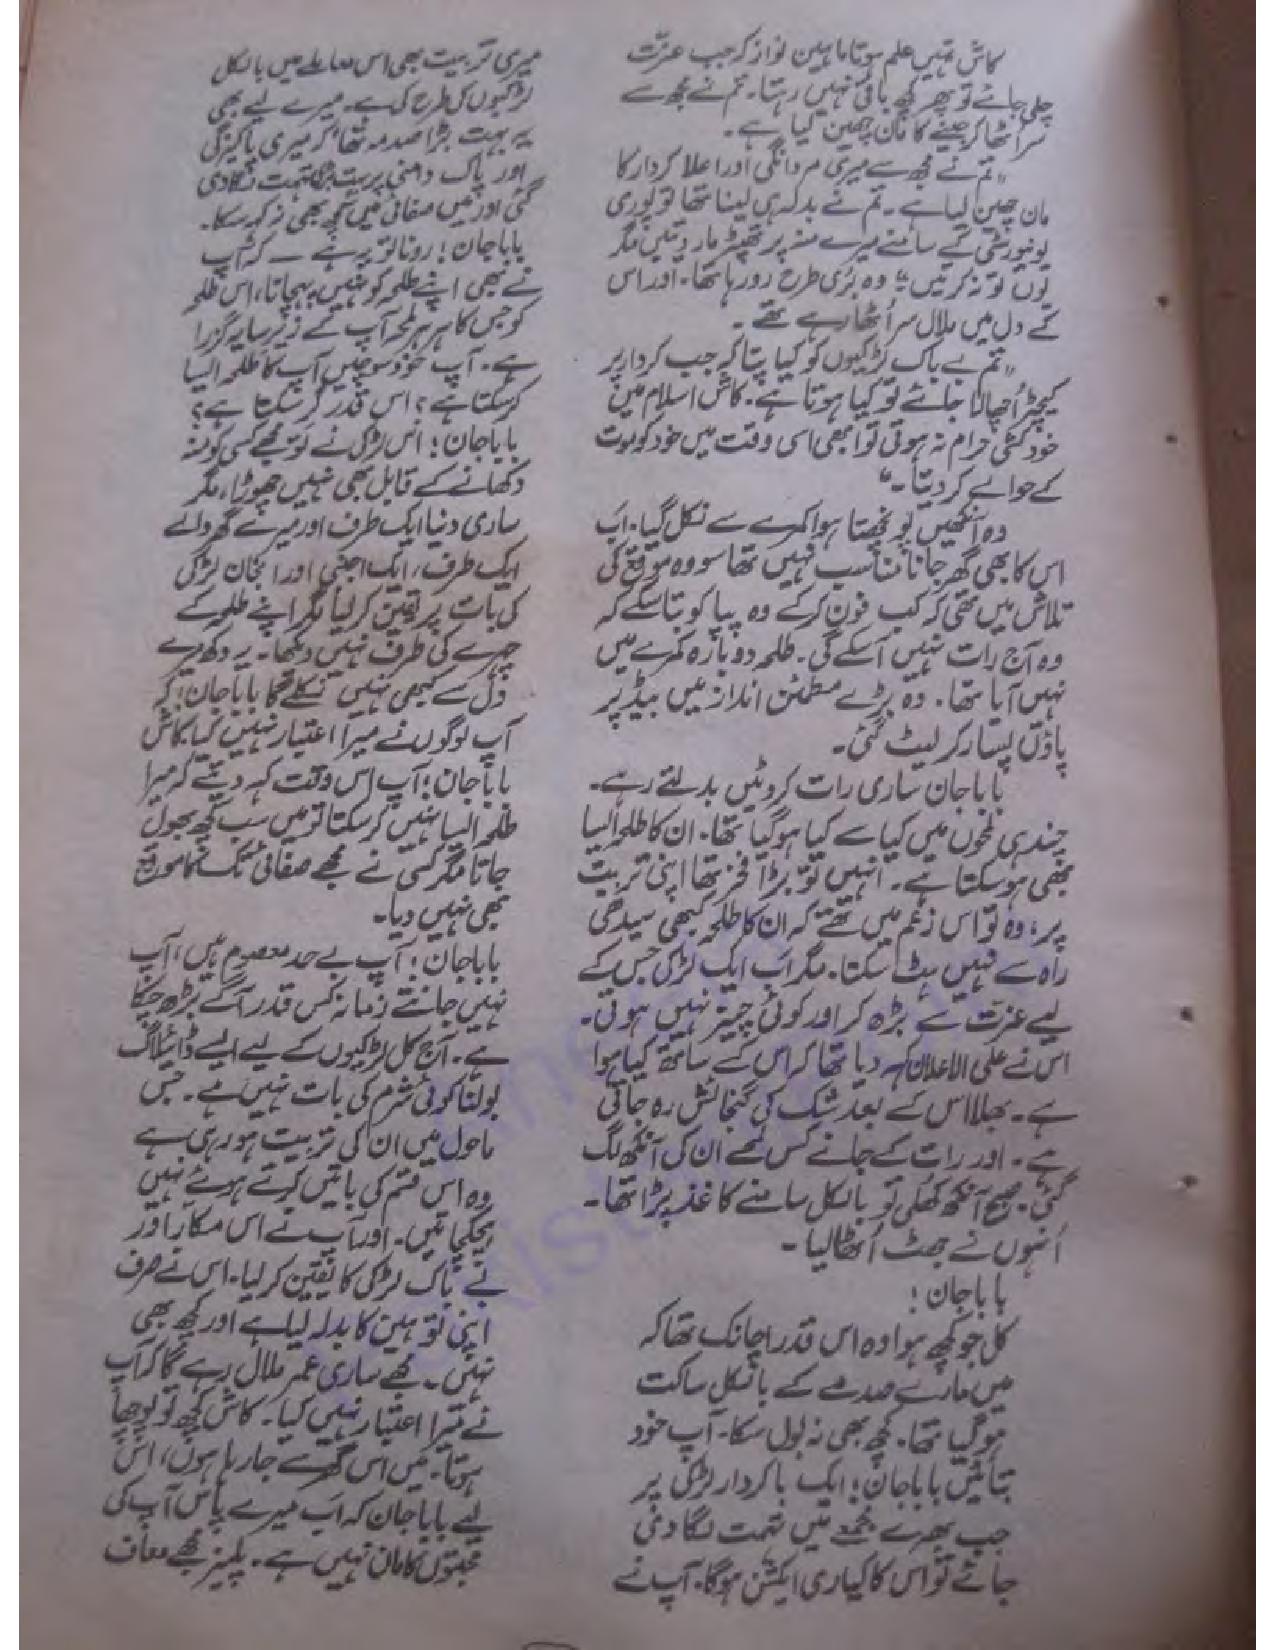 کاش تمہیں علم ہوتا ماہین نواز کہ جب عزت
چلی جائے تو پھر کچھ باقی نہیں رہتا۔ تم نے مجھ سے
سر اٹھا کر جینے کا مان چھین لیا ہے۔
"تم نے مجھ سے میری مردانگی اور اعلا کردار کا
مان چھین لیا ہے۔ تم نے بدلہ ہی لینا تھا تو پوری
یونیورسٹی کے سامنے میرے منہ پر تھپڑ مار دیتیں مگر
یوں تو نہ کرتیں" وہ بری طرح رو رہا تھا۔ اور اس
کے دل میں ملال سر اُٹھا رہے تھے۔
"تم بے باک لڑکیوں کو کیا پتا کہ جب کردار پر
کیچڑ اُچھالا جائے تو کیا ہوتا ہے۔ کاش اسلام میں
خودکشی حرام نہ ہوتی تو ابھی اسی وقت میں خود کو موت
کے حوالے کر دیتا۔"
وہ آنکھیں پونچھتا ہوا کمرے سے نکل گیا۔ اب
اس کا بھی گھر جانا مناسب نہیں تھا سو وہ موقع کی
تلاش میں تھی کہ کب فون کرکے وہ پپا کو بتا سکے کہ
وہ آج رات نہیں آسکے گی۔ طلحہ دوبارہ کمرے میں
نہیں آیا تھا۔ وہ بڑے مطمئن انداز میں بیڈ پر
پاؤں پسار کر لیٹ گئی۔
بابا جان ساری رات کروٹیں بدلتے رہے۔
چند ہی لمحوں میں کیا سے کیا ہوگیا تھا۔ ان کا طلحہ ایسا
بھی ہوسکتا ہے۔ انہیں تو بڑا فخر تھا اپنی تربیت
پر، وہ تو اس زعم میں تھے کہ ان کا طلحہ کبھی سیدھی
راہ سے نہیں ہٹ سکتا۔ مگر اب ایک لڑکی جس کے
لیے عزت سے بڑھ کر اور کوئی چیز نہیں ہوتی۔
اس نے علی الاعلان کہہ دیا تھا کہ اس کے ساتھ کیا ہوا
ہے۔ بھلا اس کے بعد شک کی گنجائش رہ جاتی
ہے۔ اور رات کے جانے کس لمحے ان کی آنکھ لگ
گئی۔ صبح آنکھ کھلی تو بالکل سامنے کاغذ پڑا تھا۔
اُنہوں نے جھٹ اُٹھا لیا۔
بابا جان!
کل جو کچھ ہوا وہ اس قدر اچانک تھا کہ
میں مارے صدمے کے بالکل ساکت
ہو گیا تھا۔ کچھ بھی نہ بول سکا۔ آپ خود
بتائیں بابا جان! ایک باکردار لڑکی پر
جب بھرے مجمعے میں تہمت لگا دی
جائے تو اس کا کیا ری ایکشن ہوگا۔ آپ نے
میری تربیت بھی اس معاملے میں بالکل
لڑکیوں کی طرح کی ہے۔ میرے لیے بھی
یہ بہت بڑا صدمہ تھا کہ میری پاکیزگی
اور پاک دامنی پر بہت بڑی تہمت لگا دی
گئی اور میں صفائی میں کچھ بھی نہ کہہ سکا۔
بابا جان! رونا تو یہ ہے ۔ کہ آپ
نے بھی اپنے طلحہ کو نہیں پہچانا، اس طلحہ
کو جس کا ہر ہر لمحہ آپ کے زیر سایہ گزرا
ہے۔ آپ خود سوچیں آپ کا طلحہ ایسا
کرسکتا ہے؟ اس قدر گر سکتا ہے؟
بابا جان! اس لڑکی نے تو مجھے کسی کو منہ
دکھانے کے قابل بھی نہیں چھوڑا، مگر
ساری دنیا ایک طرف اور میرے گھر والے
ایک طرف، ایک اجنبی اور انجان لڑکی
کی بات پر یقین کر لیا مگر اپنے طلحہ کے
چہرے کی طرف نہیں دیکھا۔ یہ دکھ میرے
دل سے کبھی نہیں نکلے گا بابا جان! کہ
آپ لوگوں نے میرا اعتبار نہیں کیا کاش
بابا جان! آپ اس وقت کہہ دیتے کہ میرا
طلحہ ایسا نہیں کرسکتا تو میں سب کچھ بھول
جاتا مگر کسی نے مجھے صفائی تک کا موقع
بھی نہیں دیا۔
بابا جان! آپ بے حد معصوم ہیں، آپ
نہیں جانتے زمانہ کس قدر آگے بڑھ چکا
ہے۔ آج کل لڑکیوں کے لیے ایسے ڈائیلاگ
بولنا کوئی شرم کی بات نہیں ہے۔ جس
ماحول میں ان کی تربیت ہو رہی ہے
وہ اس قسم کی باتیں کرتے ہوئے نہیں
ہچکچاتیں۔ اور آپ نے اس مکار اور
بے باک لڑکی کا یقین کر لیا۔ اس نے صرف
اپنی توہین کا بدلہ لیا ہے اور کچھ بھی
نہیں۔ مجھے ساری عمر ملال رہے گا کہ آپ
نے میرا اعتبار نہیں کیا۔ کاش کچھ تو پوچھا
ہوتا۔ میں اس گھر سے جا رہا ہوں، اس
لیے بابا جان کہ اب میرے پاس آپ کی
محبتوں کا مان نہیں ہے۔ پلیز مجھے معاف